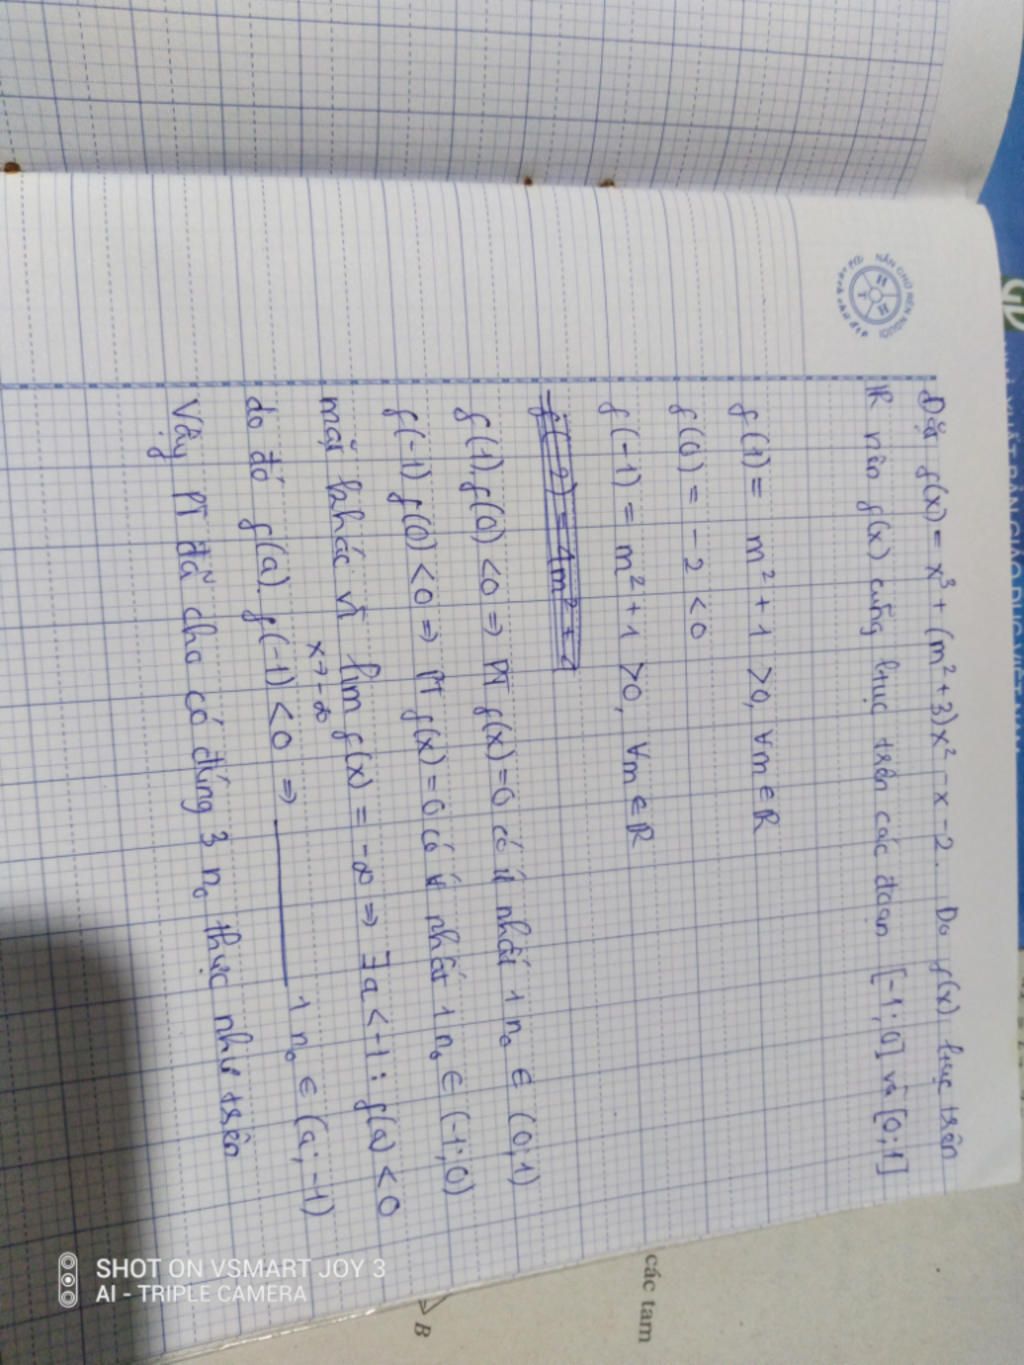 Đặt f(x) = x³ + (m² + 3)x² - x - 2. Do f(x) liục trên
R nên f(x) cũng liục trên các đoạn [-1; 0] và [0; 1]
f(1) = m² + 1 > 0, ∀m ∈ R
f(0) = - 2 < 0
f(-1) = m² + 1 > 0, ∀m ∈ R
f(-2) = 4m² + 4
f(1).f(0) < 0 ⇒ PT f(x) = 0 có ít nhất 1 n₀ ∈ (0; 1)
f(-1) f(0) < 0 ⇒ PT f(x) = 0 có ít nhất 1 n₀ ∈ (-1; 0)
mặt khác vì lim f(x) = -∞ ⇒ ∃a < -1 : f(a) < 0
x→-∞
do đó f(a). f(-1) < 0 ⇒ 1 n₀ ∈ (a; -1)
Vậy PT đã cho có đúng 3 n₀ thực như trên
NẮN CHỮ RÈN NGƯỜI
các tam
B
SHOT ON VSMART JOY 3
AI - TRIPLE CAMERA